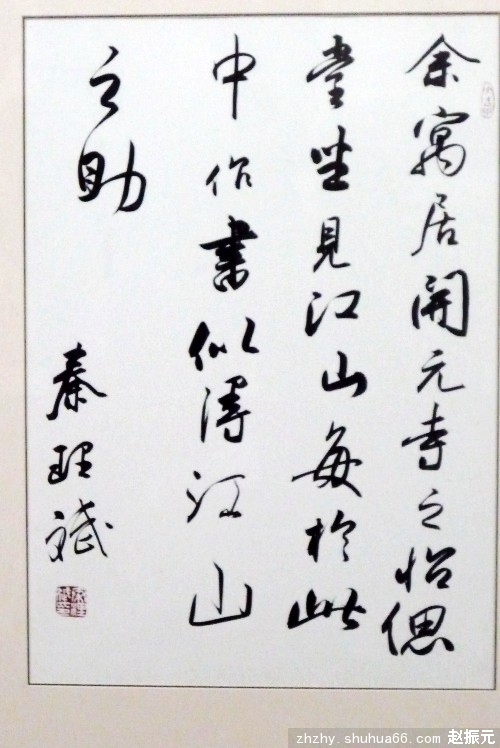 余寓居開元寺之怡偲
堂坐見江山每於此
中作書似得江山
之助
秦理斌
zhzhy.shuhua66.com 赵振元